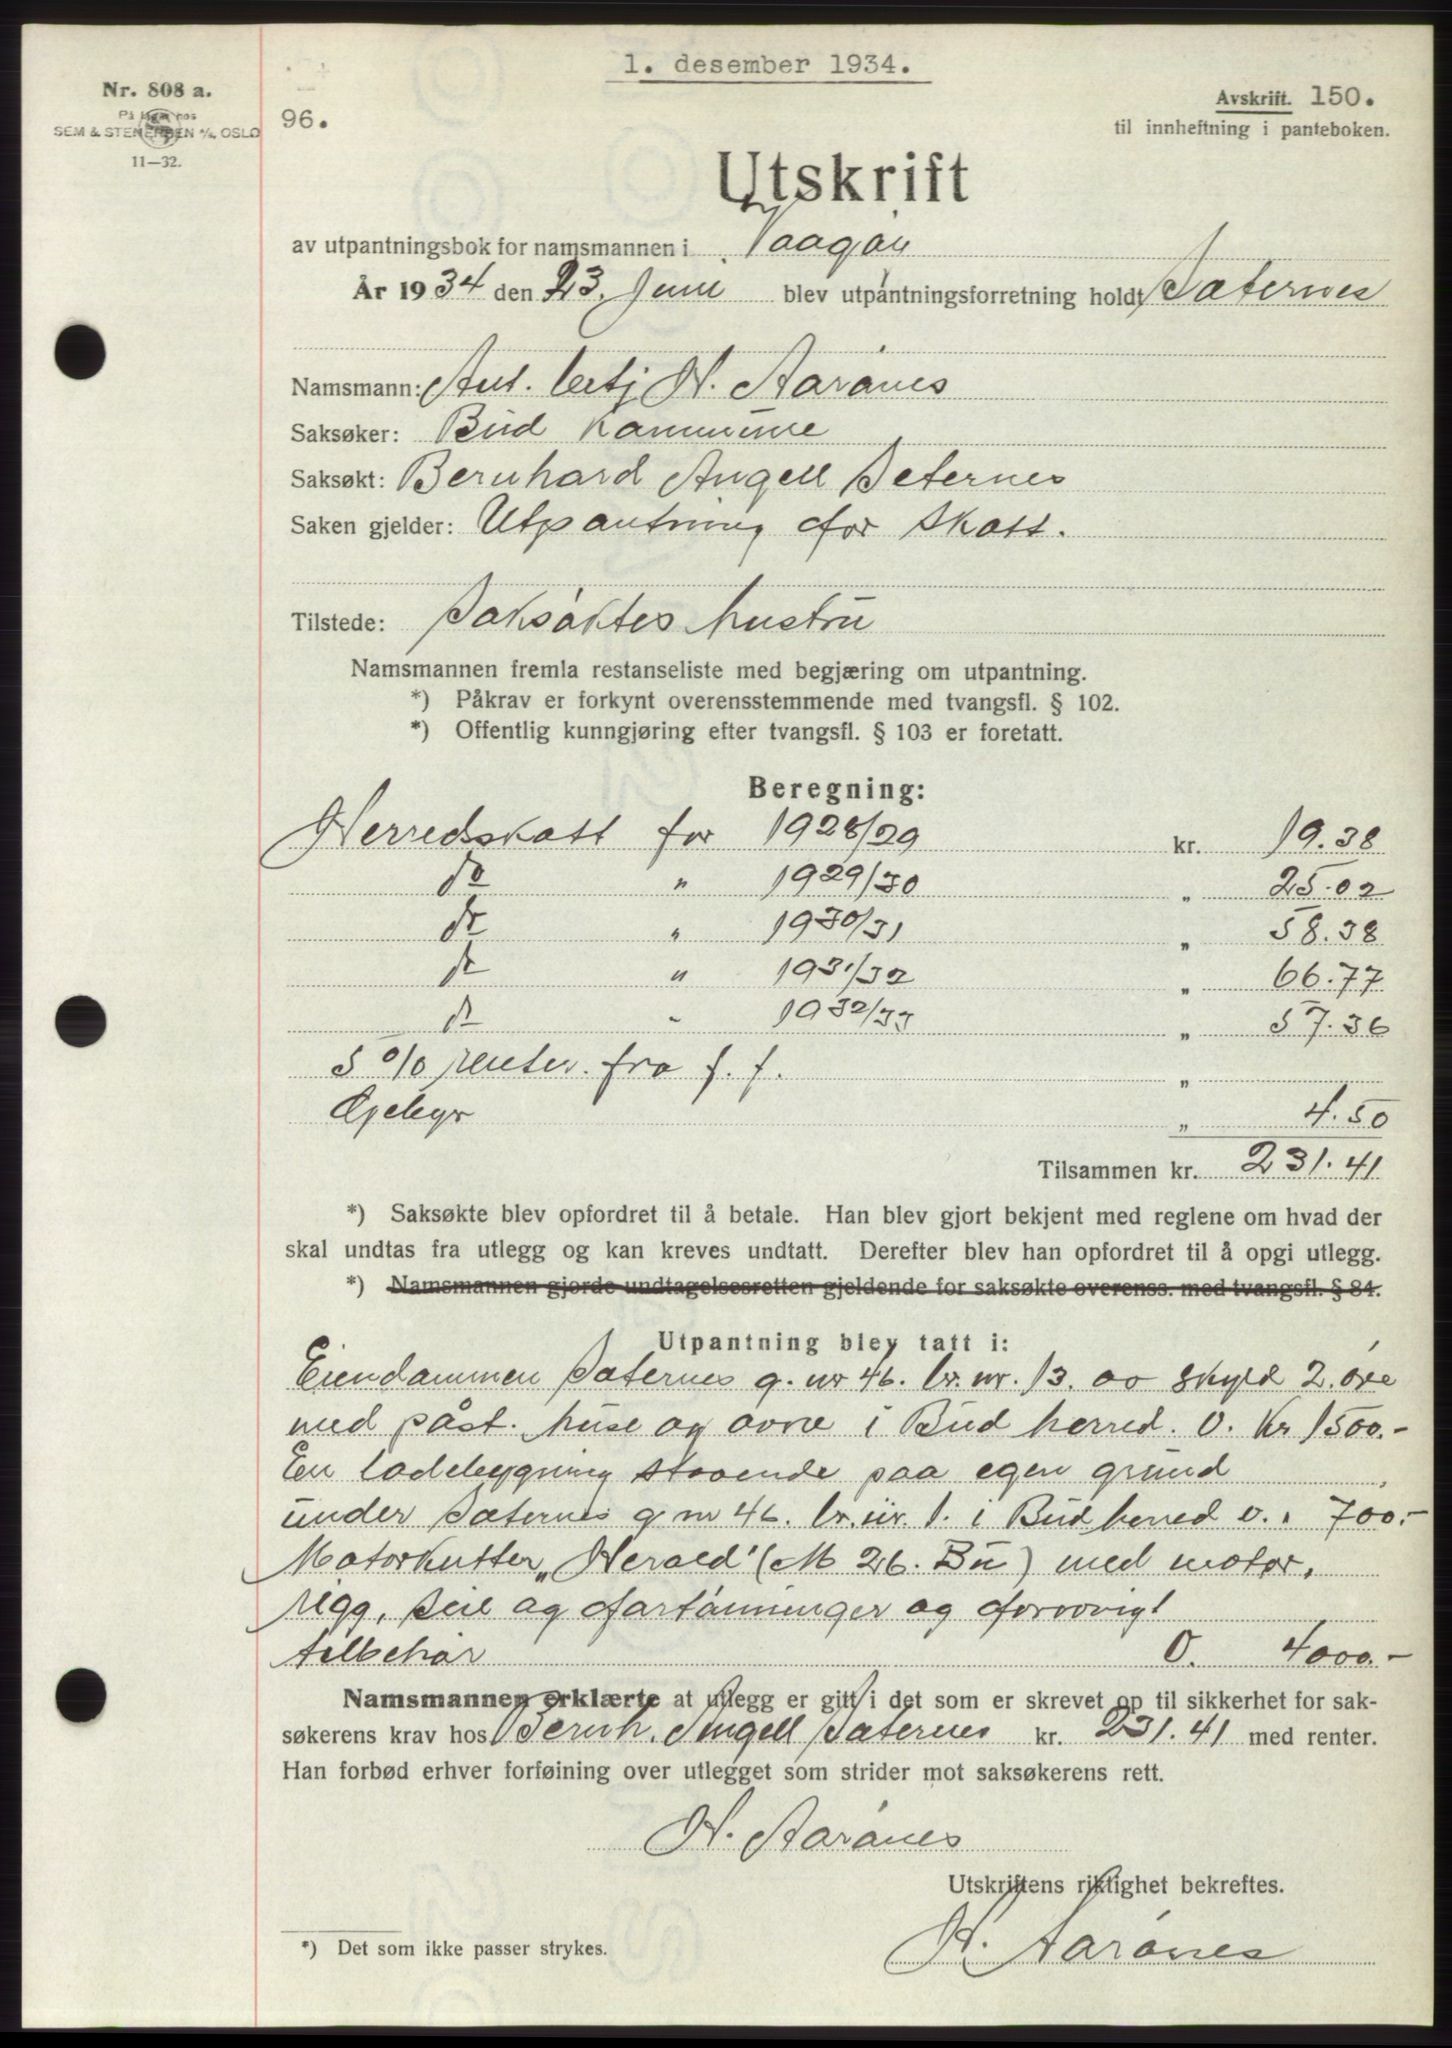 1. desember 1934.
Nr. 808 a.
På lager hos
SEM & STENERSEN A/S, OSLO
11—32.
96.
Avskrift. 150.
til innheftning i panteboken.
Utskrift
av utpantningsbok for namsmannen i Vaagøy
År 1934 den 23. Juni blev utpantningsforretning holdt Sæternes
Namsmann: Aut. betj N. Aarønes
Saksøker: Bud Kommune
Saksøkt: Bernhard Angell Seternes
Saken gjelder: Utpantning for skatt.
Tilstede: Saksøktes hustru
Namsmannen fremla restanseliste med begjæring om utpantning.
*) Påkrav er forkynt overensstemmende med tvangsfl. § 102.
*) Offentlig kunngjøring efter tvangsfl. § 103 er foretatt.
Beregning:
Herredskatt for 1928/29 kr. 19.38
do " 1929/30 " 25.02
do " 1930/31 " 58.38
do " 1931/32 " 66.77
do " 1932/33 " 57.36
5 % renter. fra f. f. "
Gebyr " 4.50
Tilsammen kr. 231.41
*) Saksøkte blev opfordret til å betale. Han blev gjort bekjent med reglene om hvad der
skal undtas fra utlegg og kan kreves undtatt. Derefter blev han opfordret til å opgi utlegg.
*) Namsmannen gjorde undtagelsesretten gjeldende for saksøkte overenss. med tvangsfl. § 84.
Utpantning blev tatt i:
Eiendommen Sæternes g. nr 46. br. nr. 13. av skyld 2. øre
med påst. huse og ovne i Bud herred. O. Kr 1500.-
En ladebygning staaende paa egen grund
under Sæternes g nr 46. br. nr. 1. i Bud herred o. " 700.-
Motorkutter „Herald" (M 26. Bu) med motor,
rigg, seil og fortøininger og forøvrigt
tilbehør O. 4000.-
Namsmannen erklærte at utlegg er gitt i det som er skrevet op til sikkerhet for sak-
søkerens krav hos Bernh. Angell Sæternes kr. 231.41 med renter.
Han forbød erhver forføining over utlegget som strider mot saksøkerens rett.
N. Aarønes
Utskriftens riktighet bekreftes.
N. Aarønes
*) Det som ikke passer strykes.